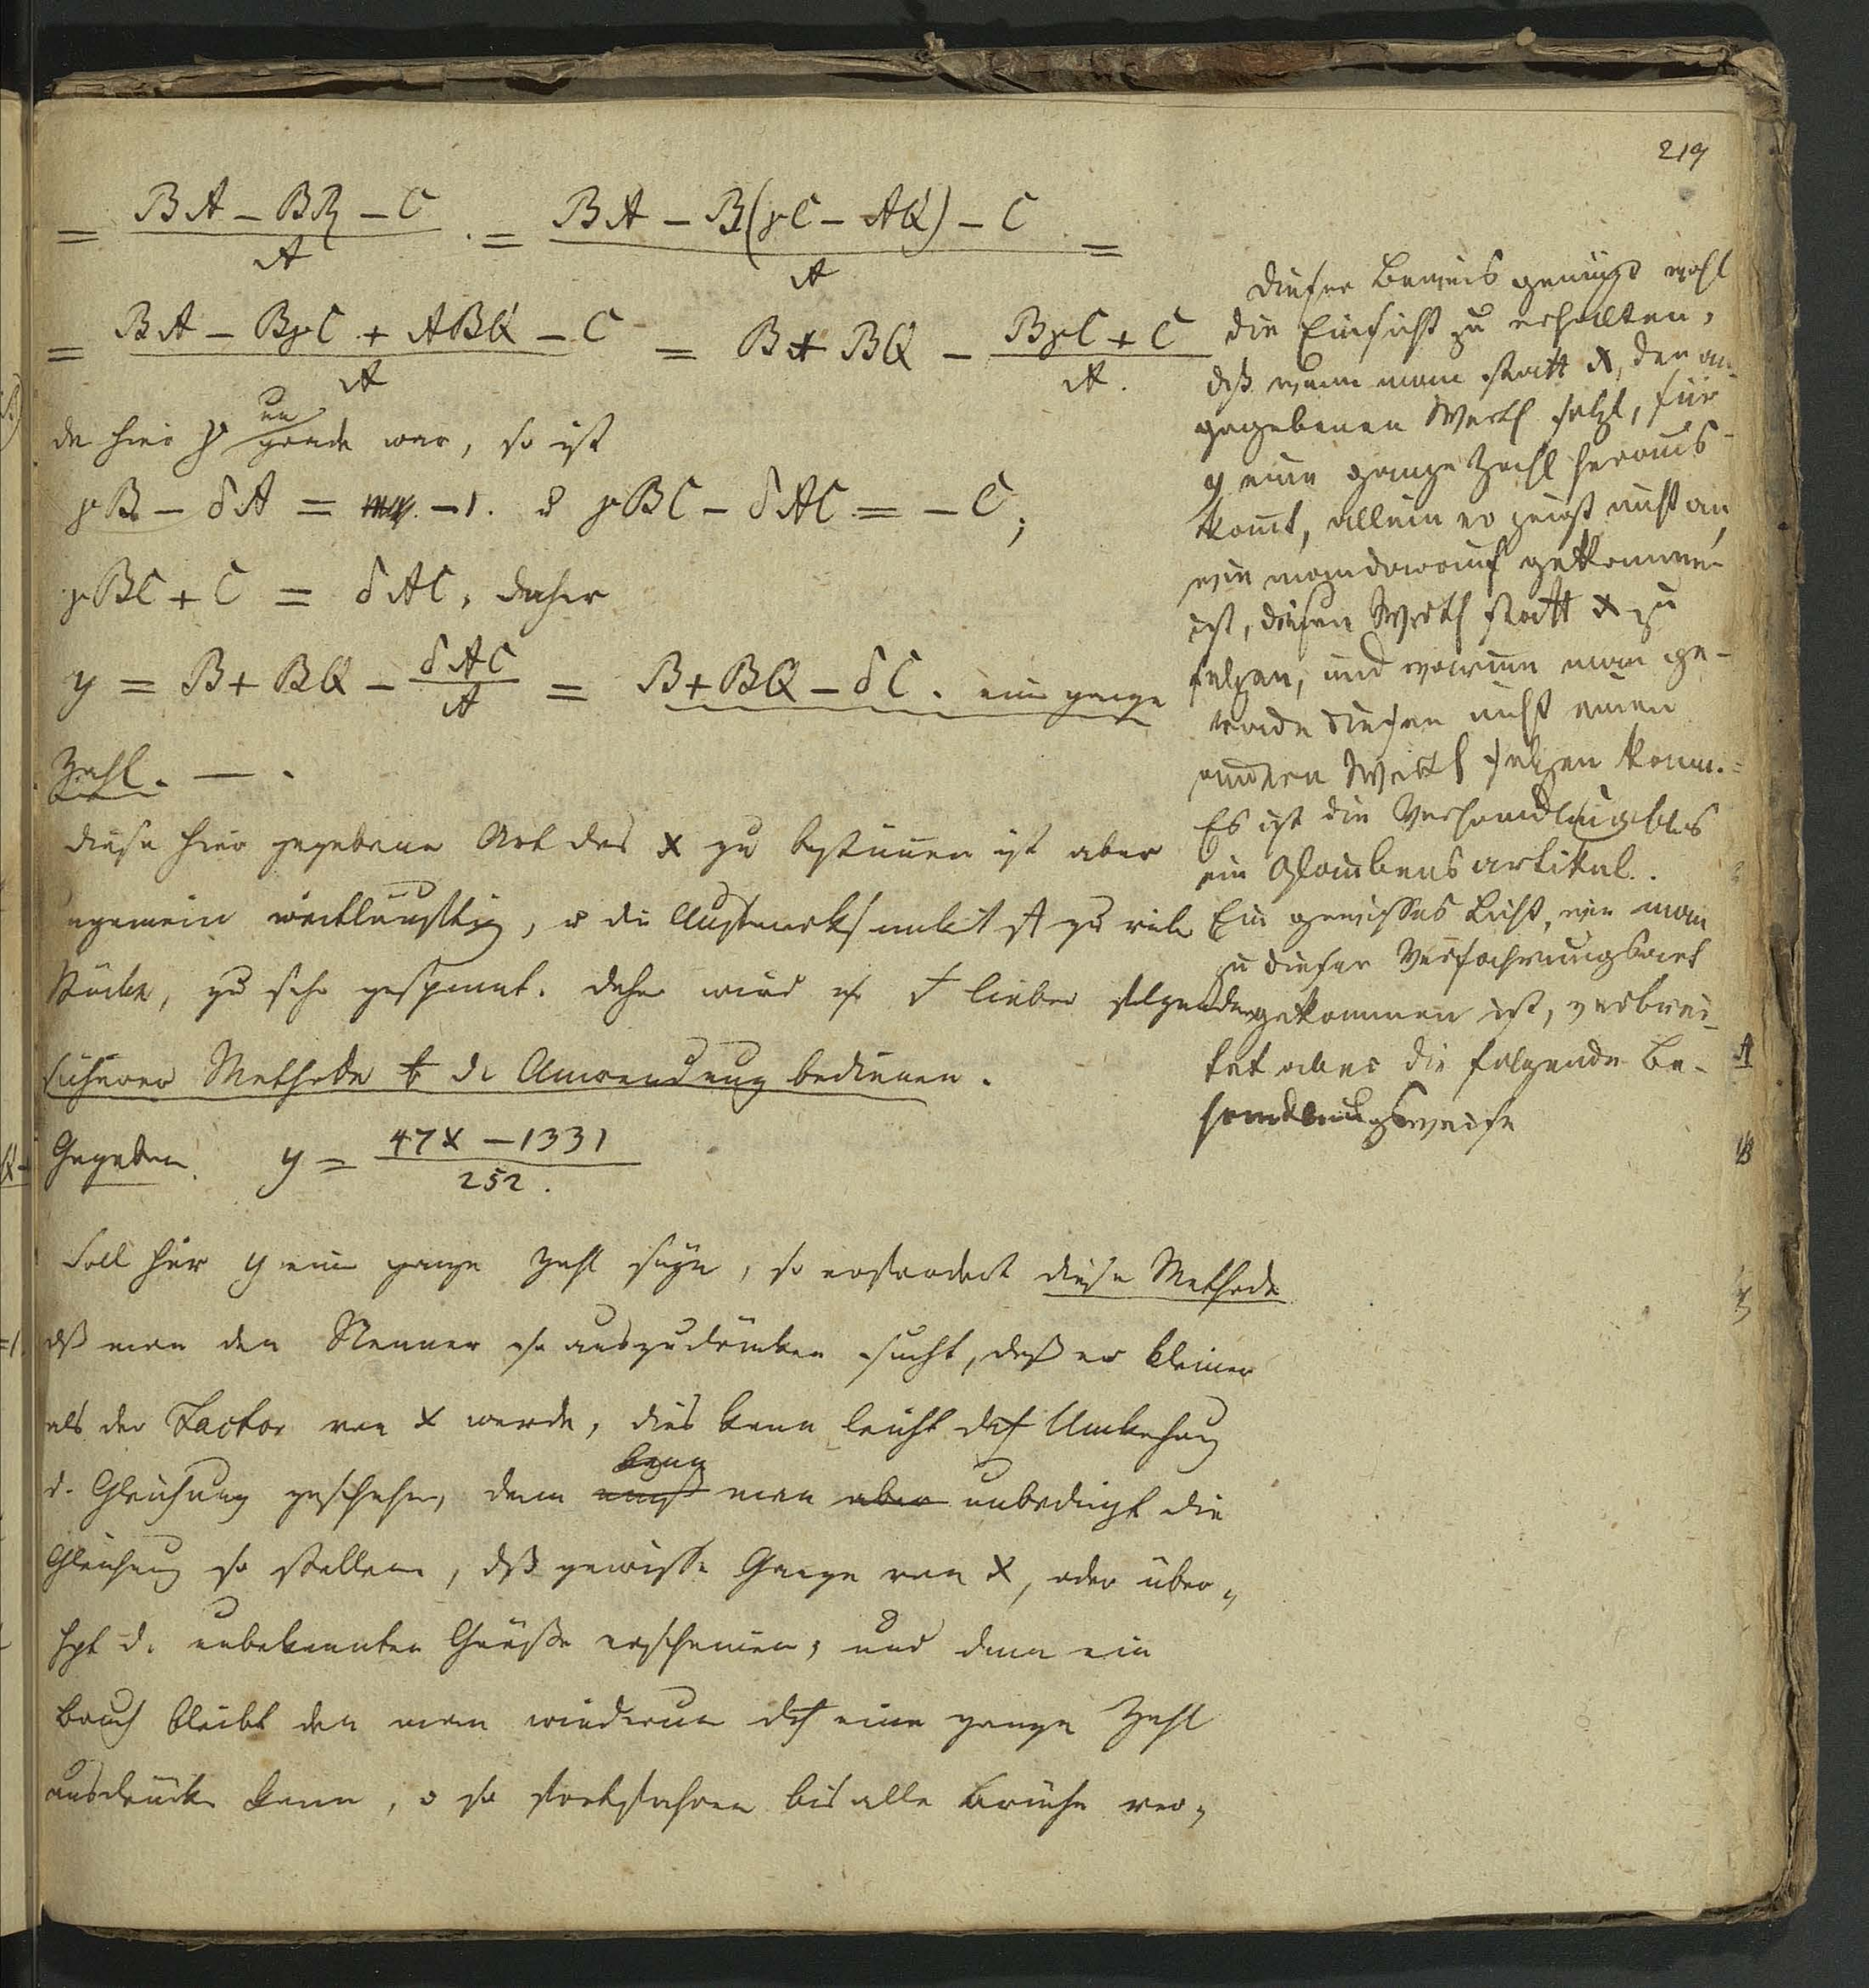 219
= (BA - BR - C)/A . = (BA - B(γC - AQ) - C)/A =
= (BA - BγC + ABQ - C)/A = B + BQ - (BγC + C)/A.
da hier γ ungerade war, so ist
γB - δA = -1. u γBC - δAC = - C;
γBC + C = δAC, daher
y = B + BQ - δAC/A = B + BQ - δC. eine ganze
Zahl. — .
diese hier gegebene Art das x zu bestimmen ist aber
ungemein weitläufftig, u die Aufmerksamkeit auf zu viele
Stücke, zu sehr gespannt. daher wird man lieber folgender
sicherer Methode der Anwendung bedienen.
Gegeben. y = (47x - 1331)/252.
Soll hier y eine ganze Zahl seyn, so erfordert diese Methode
daß man den Nenner so auszudrücken sucht, daß er kleiner
als der Factor von x werde, dies kann leicht durch Umkehrung
d. Gleichung geschehen, dann kann
muß man aber unbedingt die
Gleichung so stellen, daß gewisse Ganze von x, oder über„
hpt d. unbekannten Größe erscheinen, und dann ein
Bruch bleibt den man wiederum durch eine ganze Zahl
ausdrücken kann, u so fortfahren bis alle Brüche ver„
Dieser Beweis genügt wohl
die Einsicht zu erhalten,
daß wenn man statt x, den an-
gegebenen Werth setzt, für
y eine ganze Zahl heraus-
komt, allein er zeigt nicht an,
wie man darauf gekommen
ist, diesen Werth statt x zu
setzen, und warum man ge-
rade diesen nicht einen
andern Werth setzen kann.
Es ist die Verhandlung blos
ein Glaubensartikel.
Ein gewisses Licht, wie man
zu dieser Verfahrungsart
gekommen ist, verbrei-
tet aber die folgende Be-
handlungsweise